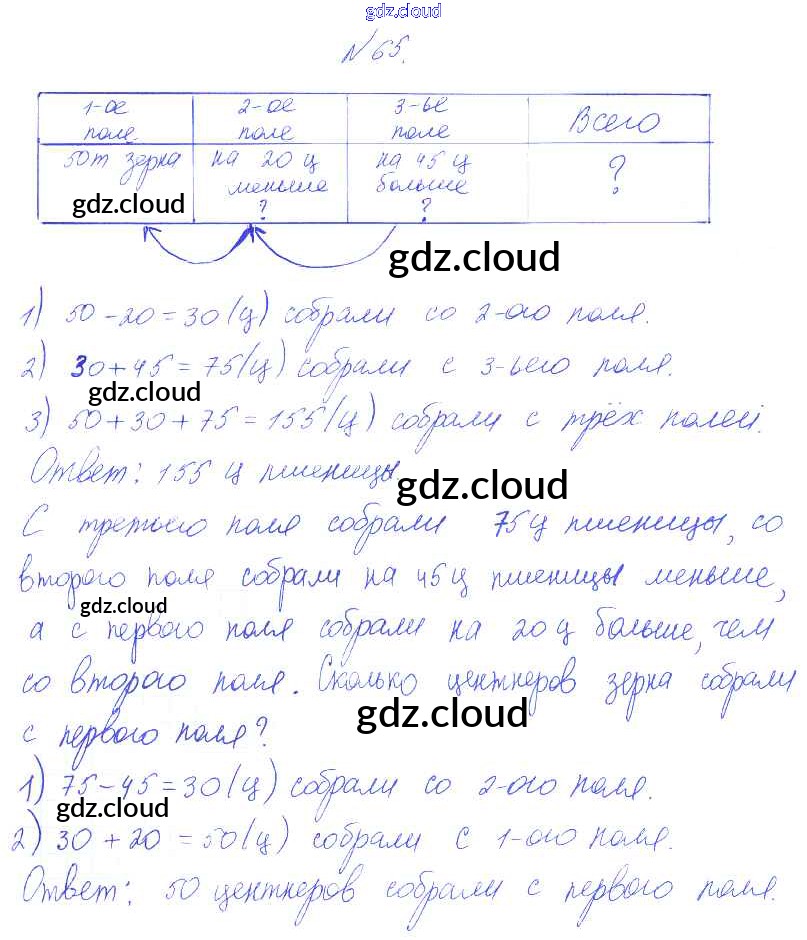 gdz.cloud
№65.
1-ое поле | 2-ое поле | 3-ье поле | Всего
50т зерна | на 20 ц меньше ? | на 45 ц больше ? | ?
gdz.cloud
gdz.cloud
1) 50-20=30(ц) собрали со 2-ого поля.
2) 30+45=75(ц) собрали с 3-ьего поля.
gdz.cloud
3) 50+30+75=155(ц) собрали с трёх полей.
Ответ: 155 ц пшеницы
gdz.cloud
С третьего поля собрали 75ц пшеницы, со
второго поля собрали на 45ц пшеницы меньше,
gdz.cloud
а с первого поля собрали на 20ц больше, чем
со второго поля. Сколько центнеров зерна собрали
gdz.cloud
с первого поля?
1) 75-45=30(ц) собрали со 2-ого поля.
gdz.cloud
2) 30+20=50(ц) собрали с 1-ого поля.
Ответ: 50 центнеров собрали с первого поля.